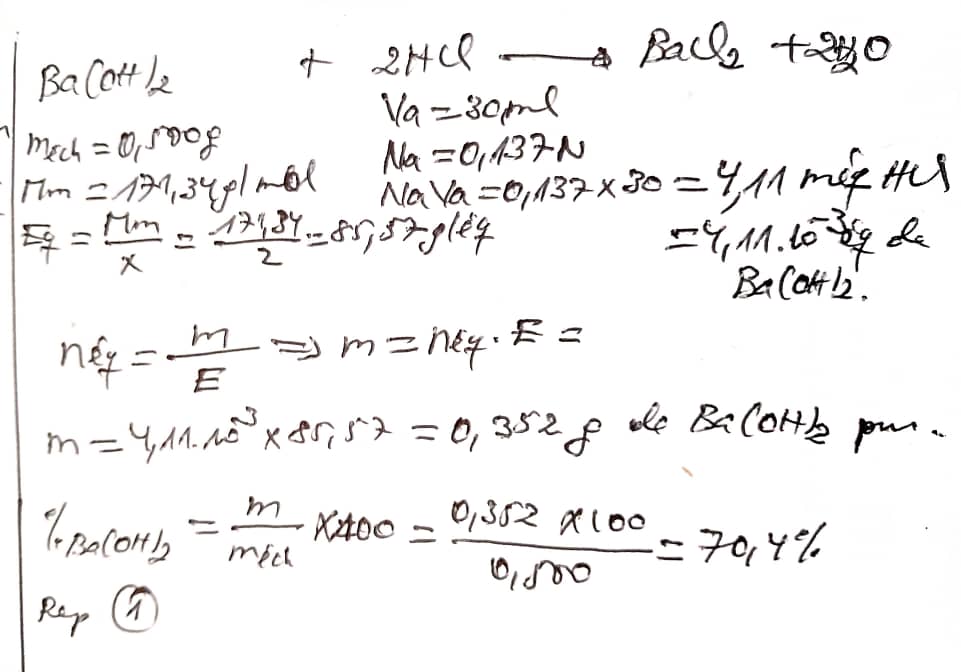 Ba(OH)2 + 2HCl → BaCl2 + 2H2O
Va = 30 ml
mech = 0,500g
Na = 0,137N
Mm = 171,34 g/mol
NaVa = 0,137 x 30 = 4,11 méq HCl
Eq = Mm/x = 171,34/2 = 85,57g/éq
= 4,11.10-3 éq de
Ba(OH)2.
néq = m/E => m = néq. E =
m = 4,11.10-3 x 85,57 = 0,352 g de Ba(OH)2 pur.
% Ba(OH)2 = m/méch X100 = 0,352 x 100/0,500 = 70,4%
Rep 1